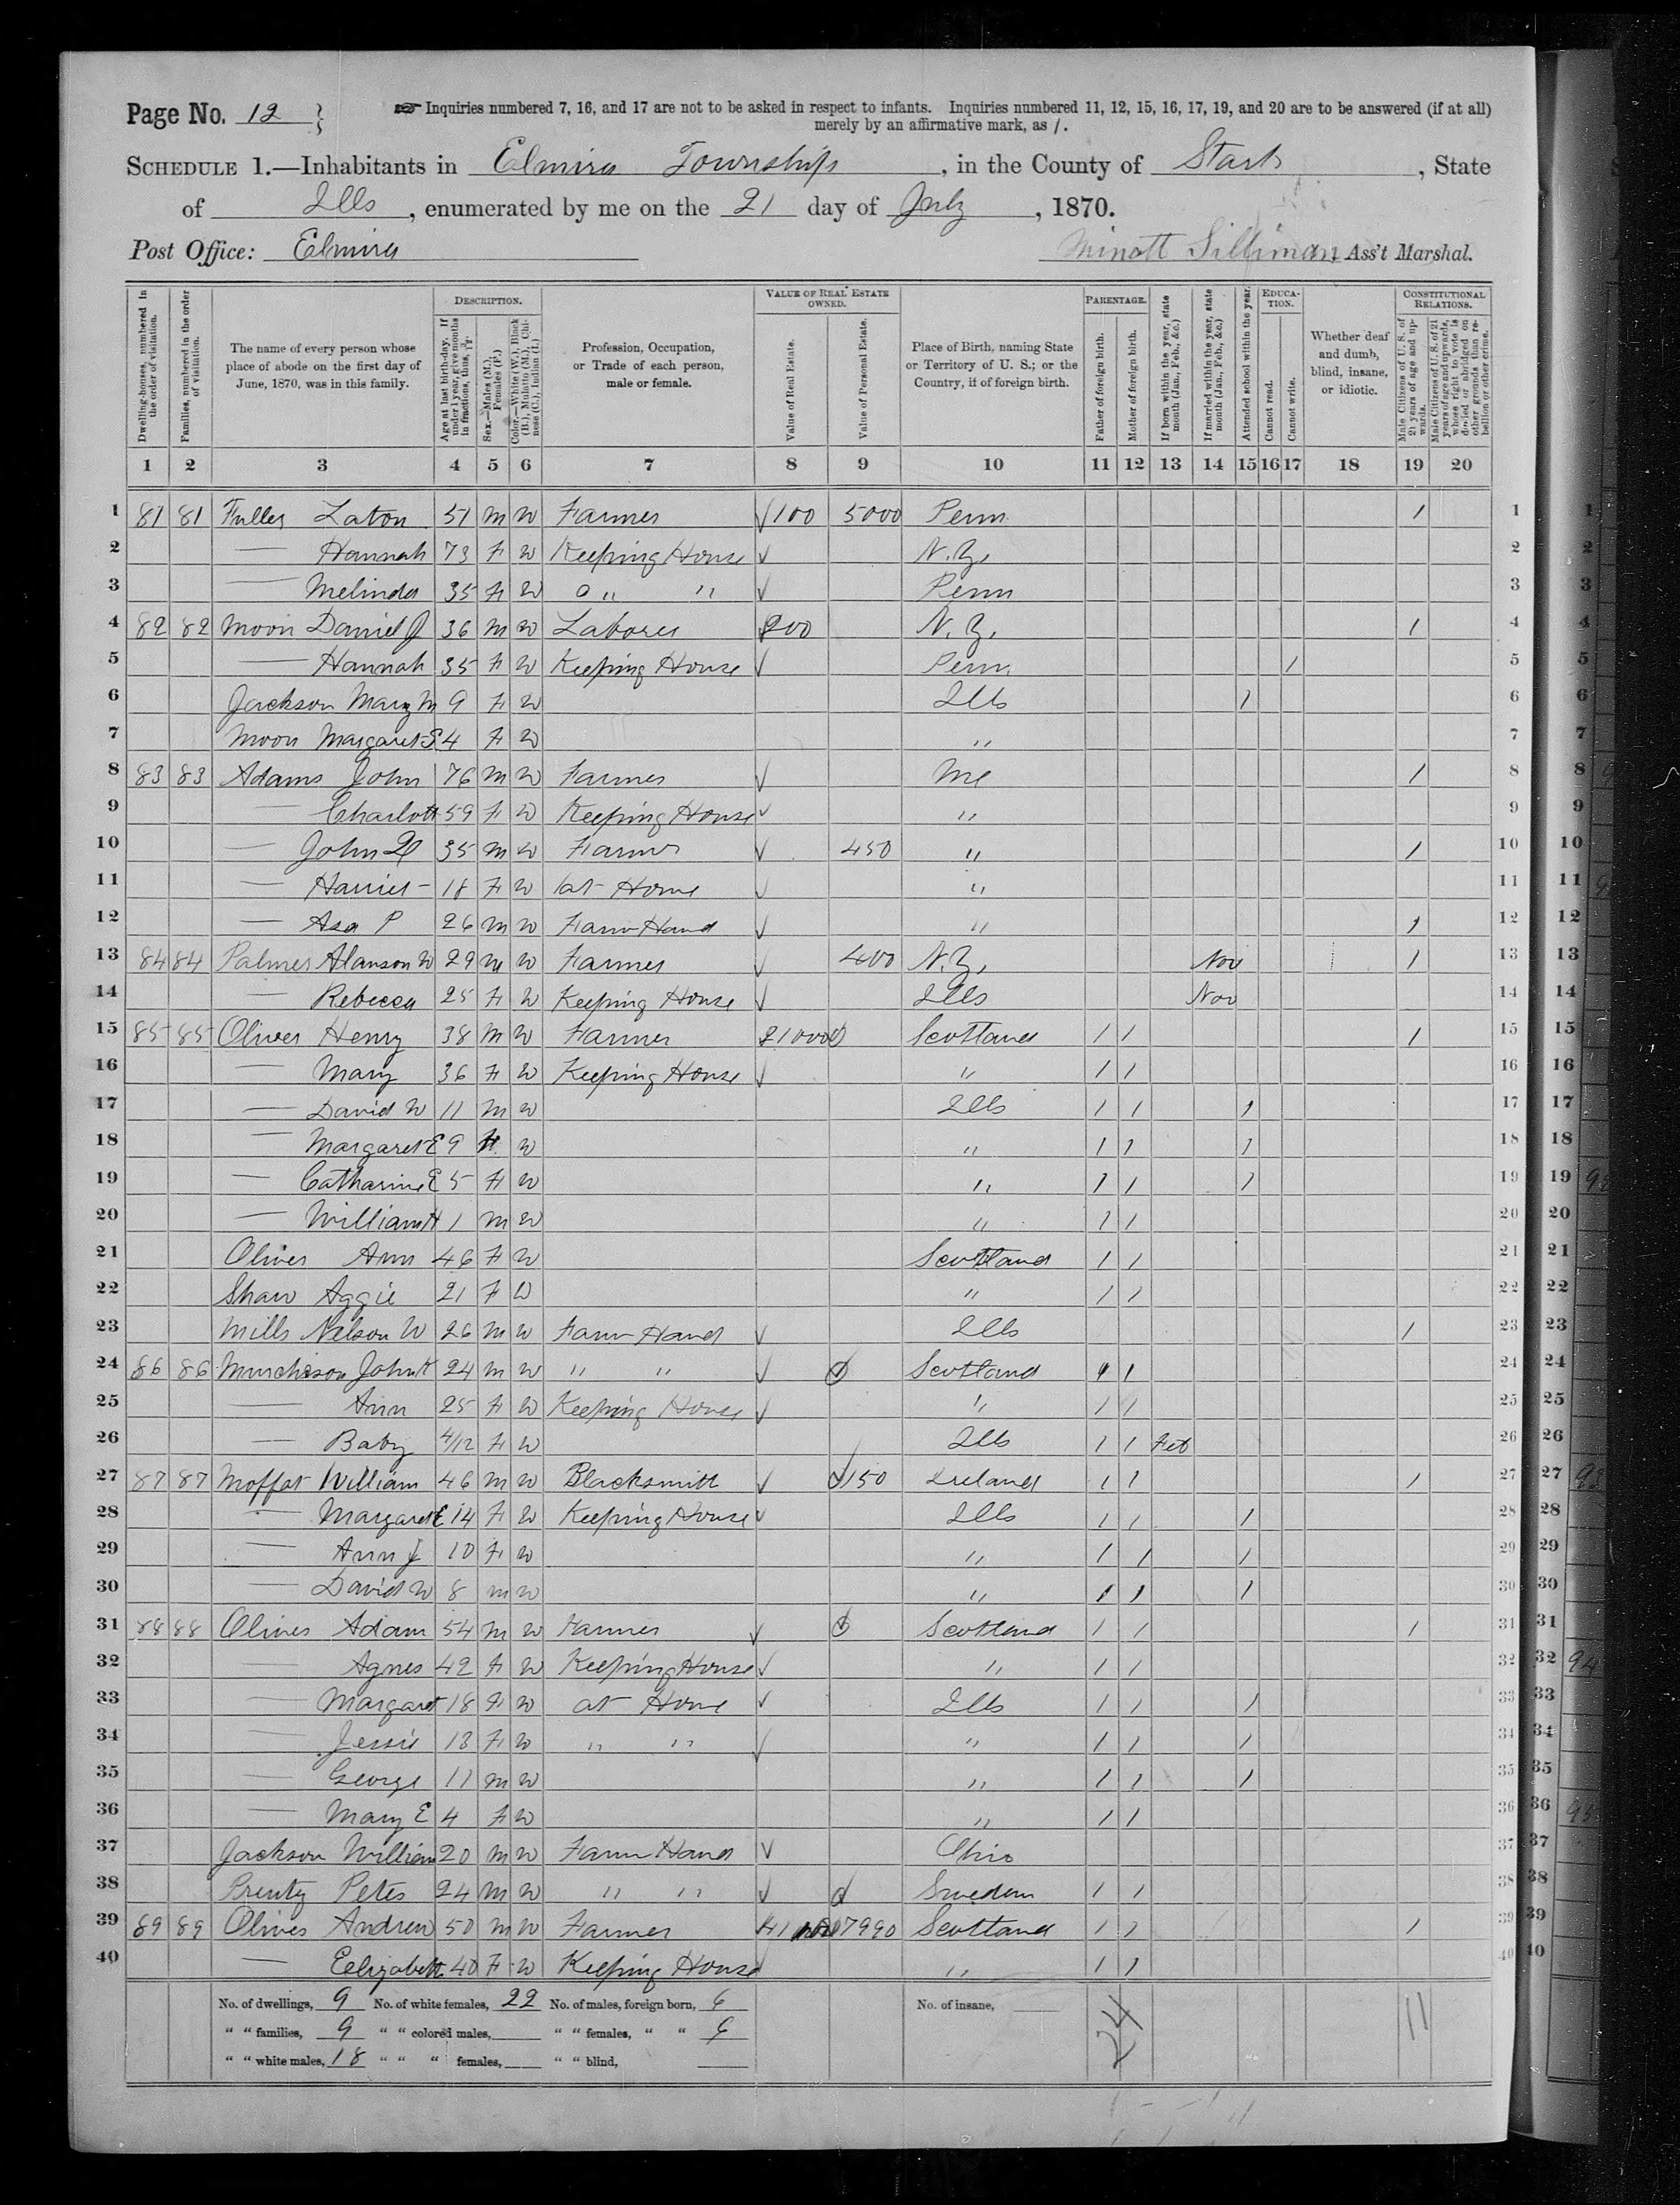 Page No. 12
Inquiries numbered 7, 16, and 17 are not to be asked in respect to infants. Inquiries numbered 11, 12, 15, 16, 17, 19, and 20 are to be answered (if at all)
merely by an affirmative mark, as /.
SCHEDULE 1.—Inhabitants in Elmira Township, in the County of Stark, State
of Ills, enumerated by me on the 21 day of July, 1870.
Post Office: Elmira Minott Silliman, Ass't Marshal.
Dwelling-houses, numbered in the order of visitation.
Families, numbered in the order of visitation.
The name of every person whose place of abode on the first day of June, 1870, was in this family.
DESCRIPTION.
Age at last birth-day. If under 1 year, give months in fractions, thus, 3/12.
Sex.—Males (M.), Females (F.)
Color.—White (W.), Black (B.), Mulatto (M.), Chinese (C.), Indian (I.)
Profession, Occupation, or Trade of each person, male or female.
VALUE OF REAL ESTATE OWNED.
Value of Real Estate.
Value of Personal Estate.
Place of Birth, naming State or Territory of U. S.; or the Country, if of foreign birth.
PARENTAGE.
Father of foreign birth.
Mother of foreign birth.
If born within the year, state month (Jan., Feb., &c.)
If married within the year, state month (Jan., Feb., &c.)
Attended school within the year.
EDUCATION.
Cannot read.
Cannot write.
Whether deaf and dumb, blind, insane, or idiotic.
CONSTITUTIONAL RELATIONS.
Male Citizens of U. S. of 21 years of age and upwards.
Male Citizens of U. S. of 21 years of age and upwards, whose right to vote is denied or abridged on other grounds than rebellion or other crime.
1 2 3 4 5 6 7 8 9 10 11 12 13 14 15 16 17 18 19 20
1 81 81 Fuller Laton 51 M W Farmer 100 5000 Penn / 1
2 — Hannah 73 F W Keeping House N.Y. 2
3 — Melinda 35 F W " " Penn 3
4 82 82 Moon Daniel J 36 M W Laborer 200 N.Y. / 4
5 — Hannah 35 F W Keeping House Penn / 5
6 Jackson Mary M 9 F W Ills / 6
7 Moon Margaret S 4 F W " 7
8 83 83 Adams John 76 M W Farmer Me / 8
9 — Charlott 59 F W Keeping House " 9
10 — John Q 35 M W Farmer 450 " / 10
11 — Harriet 18 F W at Home " 11
12 — Asa P 26 M W Farm Hand " / 12
13 84 84 Palmer Alanson W 29 M W Farmer 400 N.Y. Nov / 13
14 — Rebecca 25 F W Keeping House Ills Nov 14
15 85 85 Oliver Henry 38 M W Farmer 21000 Scotland / / / 15
16 — Mary 36 F W Keeping House " / / 16
17 — David W 11 M W Ills / / / 17
18 — Margaret E 9 F W " / / / 18
19 — Catharine E 5 F W " / / / 19
20 — William H 1 M W " / / 20
21 Oliver Ann 46 F W Scotland / / 21
22 Shaw Aggie 21 F W " / / 22
23 Mills Nelson W 26 M W Farm Hand Ills / 23
24 86 86 Murchison John K 24 M W " " Scotland / / 24
25 — Ann 25 F W Keeping House " / / 25
26 — Baby 4/12 F W Ills / / Feb 26
27 87 87 Moffat William 46 M W Blacksmith 150 Ireland / / / 27
28 — Margaret E 14 F W Keeping House Ills / / / 28
29 — Ann J 10 F W " / / / 29
30 — David W 8 M W " / / / 30
31 88 88 Oliver Adam 54 M W Farmer Scotland / / / 31
32 — Agnes 42 F W Keeping House " / / 32
33 — Margaret 18 F W at Home Ills / / / 33
34 — Jessie 13 F W " " " / / / 34
35 — George 11 M W " / / / 35
36 — Mary E 4 F W " / / 36
37 Jackson William 20 M W Farm Hand Ohio 37
38 Peter 24 M W " " Sweden / / 38
39 89 89 Oliver Andrew 50 M W Farmer 7990 Scotland / / / 39
40 — Eelizabeth 40 F W Keeping House " / / 40
No. of dwellings, 9 No. of white females, 22 No. of males, foreign born, 6 No. of insane, 24 11
" " families, 9 " " colored males, " " females, " " 6
" " white males, 18 " " " females, " " blind,